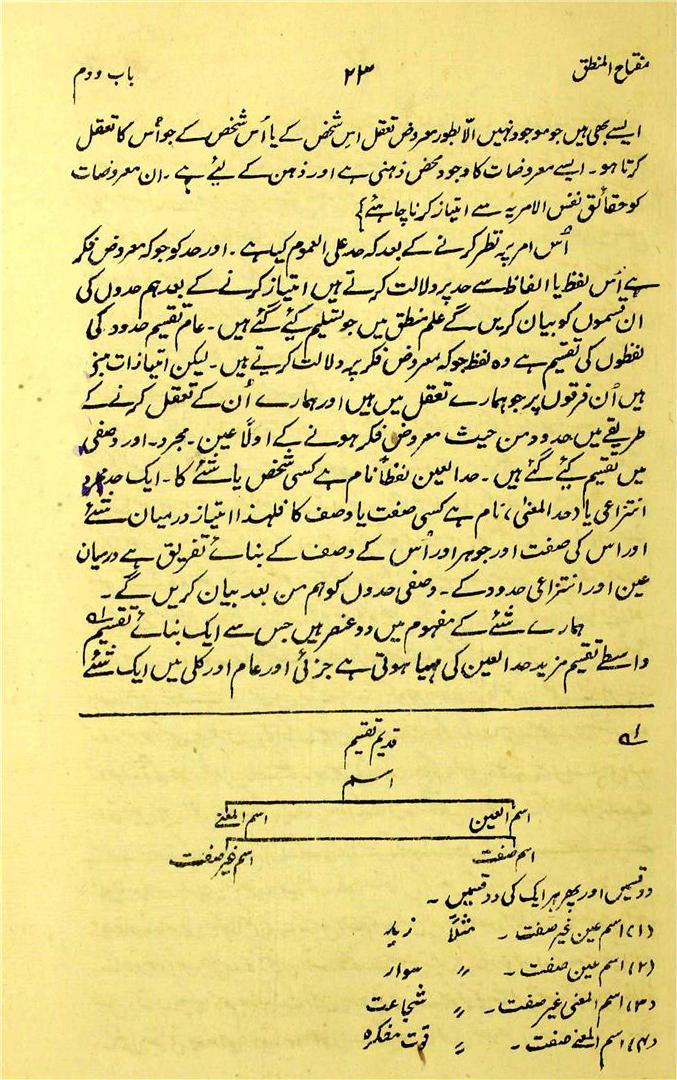 مفتاح المنطق ۲۳ باب دوم
ایسے بھی ہیں جو موجود نہیں الّا بطور معروض تعقل اس شخص کے یا اُس شخص کے جو اُس کا تعقل
کرتا ہو۔ ایسے معروضات کا وجود محض ذہنی ہے اور ذہن کے لیئے ہے۔ ان معروضات
کو حقائق نفس الامریہ سے امتیاز کرنا چاہئے}
اُس امر پہ نظر کرنے کے بعد کہ حد علی العموم کیا ہے۔ اور حد کو جو کہ معروض فکر
ہے اُس لفظ یا الفاظ سے حد پر دلالت کرتے ہیں امتیاز کرنے کے بعد ہم حدوں کی
ان قسموں کو بیان کریں گے علم منطق میں جو تسلیم کیئے گئے ہیں۔ عام تقسیم حدود کی
لفظوں کی تقسیم ہے وہ لفظ جو کہ معروض فکر پہ دلالت کرتے ہیں۔ لیکن امتیازات مبنی
ہیں اُن فرقوں پر جو ہمارے تعقل میں ہیں اور ہمارے اُن کے تعقل کرنے کے
طریقے میں حدود من حیث معروض فکر ہونے کے اولاً عین۔ مجرد۔ اور وصفی
میں تقسیم کیئے گئے ہیں۔ حد العین لفظاً نام ہے کسی شخص یا شئے کا۔ ایک حد مجرد
انتزاعی یا (حد المعنیٰ) نام ہے کسی صفت یا وصف کا فلہٰذا امتیاز درمیان شئے
اور اس کی صفت اور جوہر اور اُس کے وصف کے بنائے تفریق ہے درمیان
عین اور انتزاعی حدود کے۔ وصفی حدوں کو ہم من بعد بیان کریں گے۔
ہمارے شئے کے مفہوم میں دو عنصر ہیں جس سے ایک بنائے تقسیم ۱؎
واسطے تقسیم مزید حد العین کی مہیا ہوتی ہے جزئی اور عام اور کلی میں ایک شئے
۱؎ قدیم تقسیم
اسم
اسم العین اسم المعنے
اسم صفت اسم غیر صفت
دو قسمیں اور پھر ہر ایک کی دو قسمیں۔
(۱) اسم عین غیر صفت۔ مثلاً زید
(۲) اسم عین صفت۔ 〃 سوار
(۳) اسم المعنی غیر صفت۔ 〃 شجاعت
(۴) اسم المعنے صفت۔ 〃 قوت مفکرہ